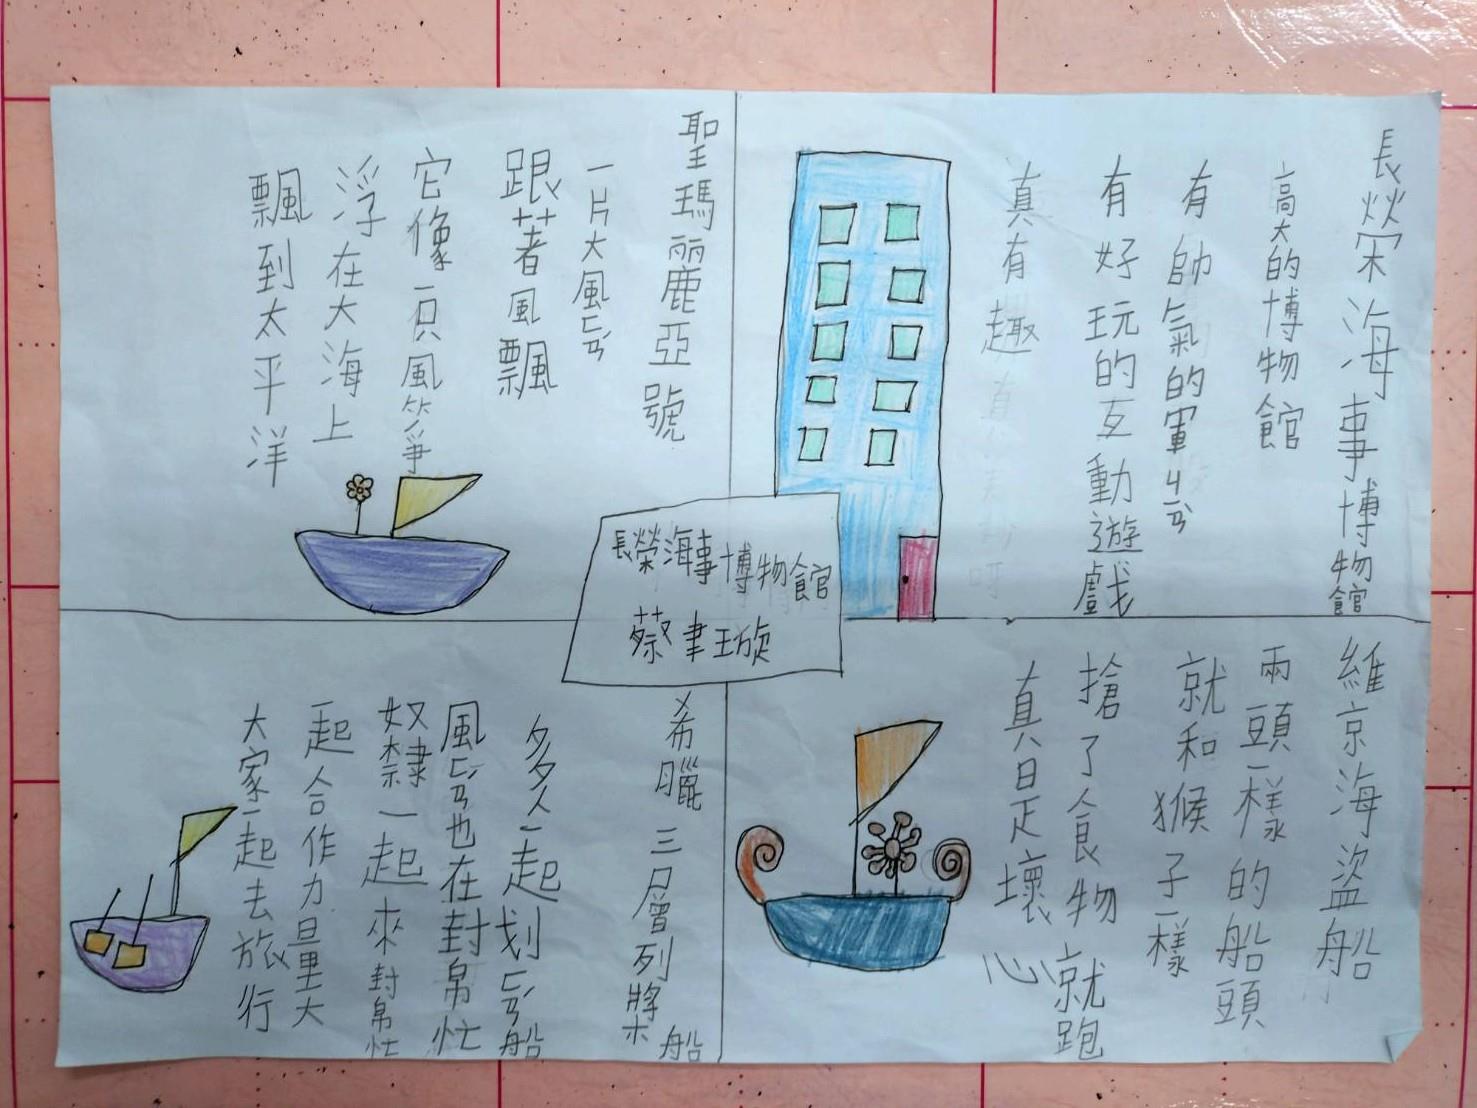 長榮海事博物館
高大的博物館
有帥氣的軍ㄐㄧㄢˋ
有好玩的互動遊戲
真有趣
聖瑪丽鹿亞號
一片大風ㄈㄢˊ
跟著風飄
它像一只風箏
浮在大海上
飄到太平洋
長榮海事博物館
蔡聿琁
維京海盜船
兩頭一樣的船頭
就和猴子一樣
搶了食物就跑
真是壞心
希臘三層列槳船
多人一起划ㄈㄢˊ船
風ㄈㄢˊ也在封帛忙
奴隸一起來封帛忙
起合作力量大
大家一起去旅行